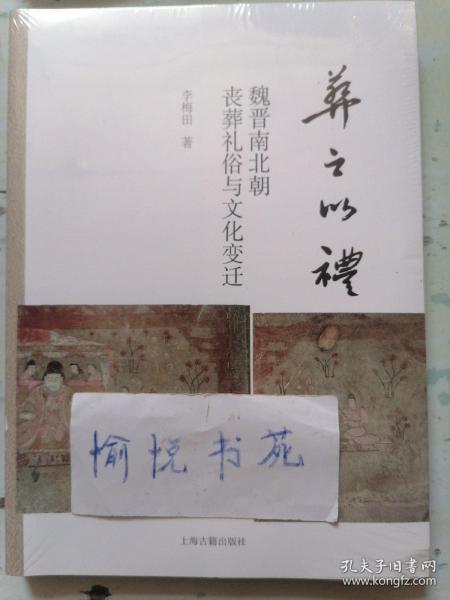 葬之以禮
魏晋南北朝
丧葬礼俗与文化变迁
李梅田 著
愉悦书苑
上海古籍出版社
孔夫子旧书网
www.kongfz.com